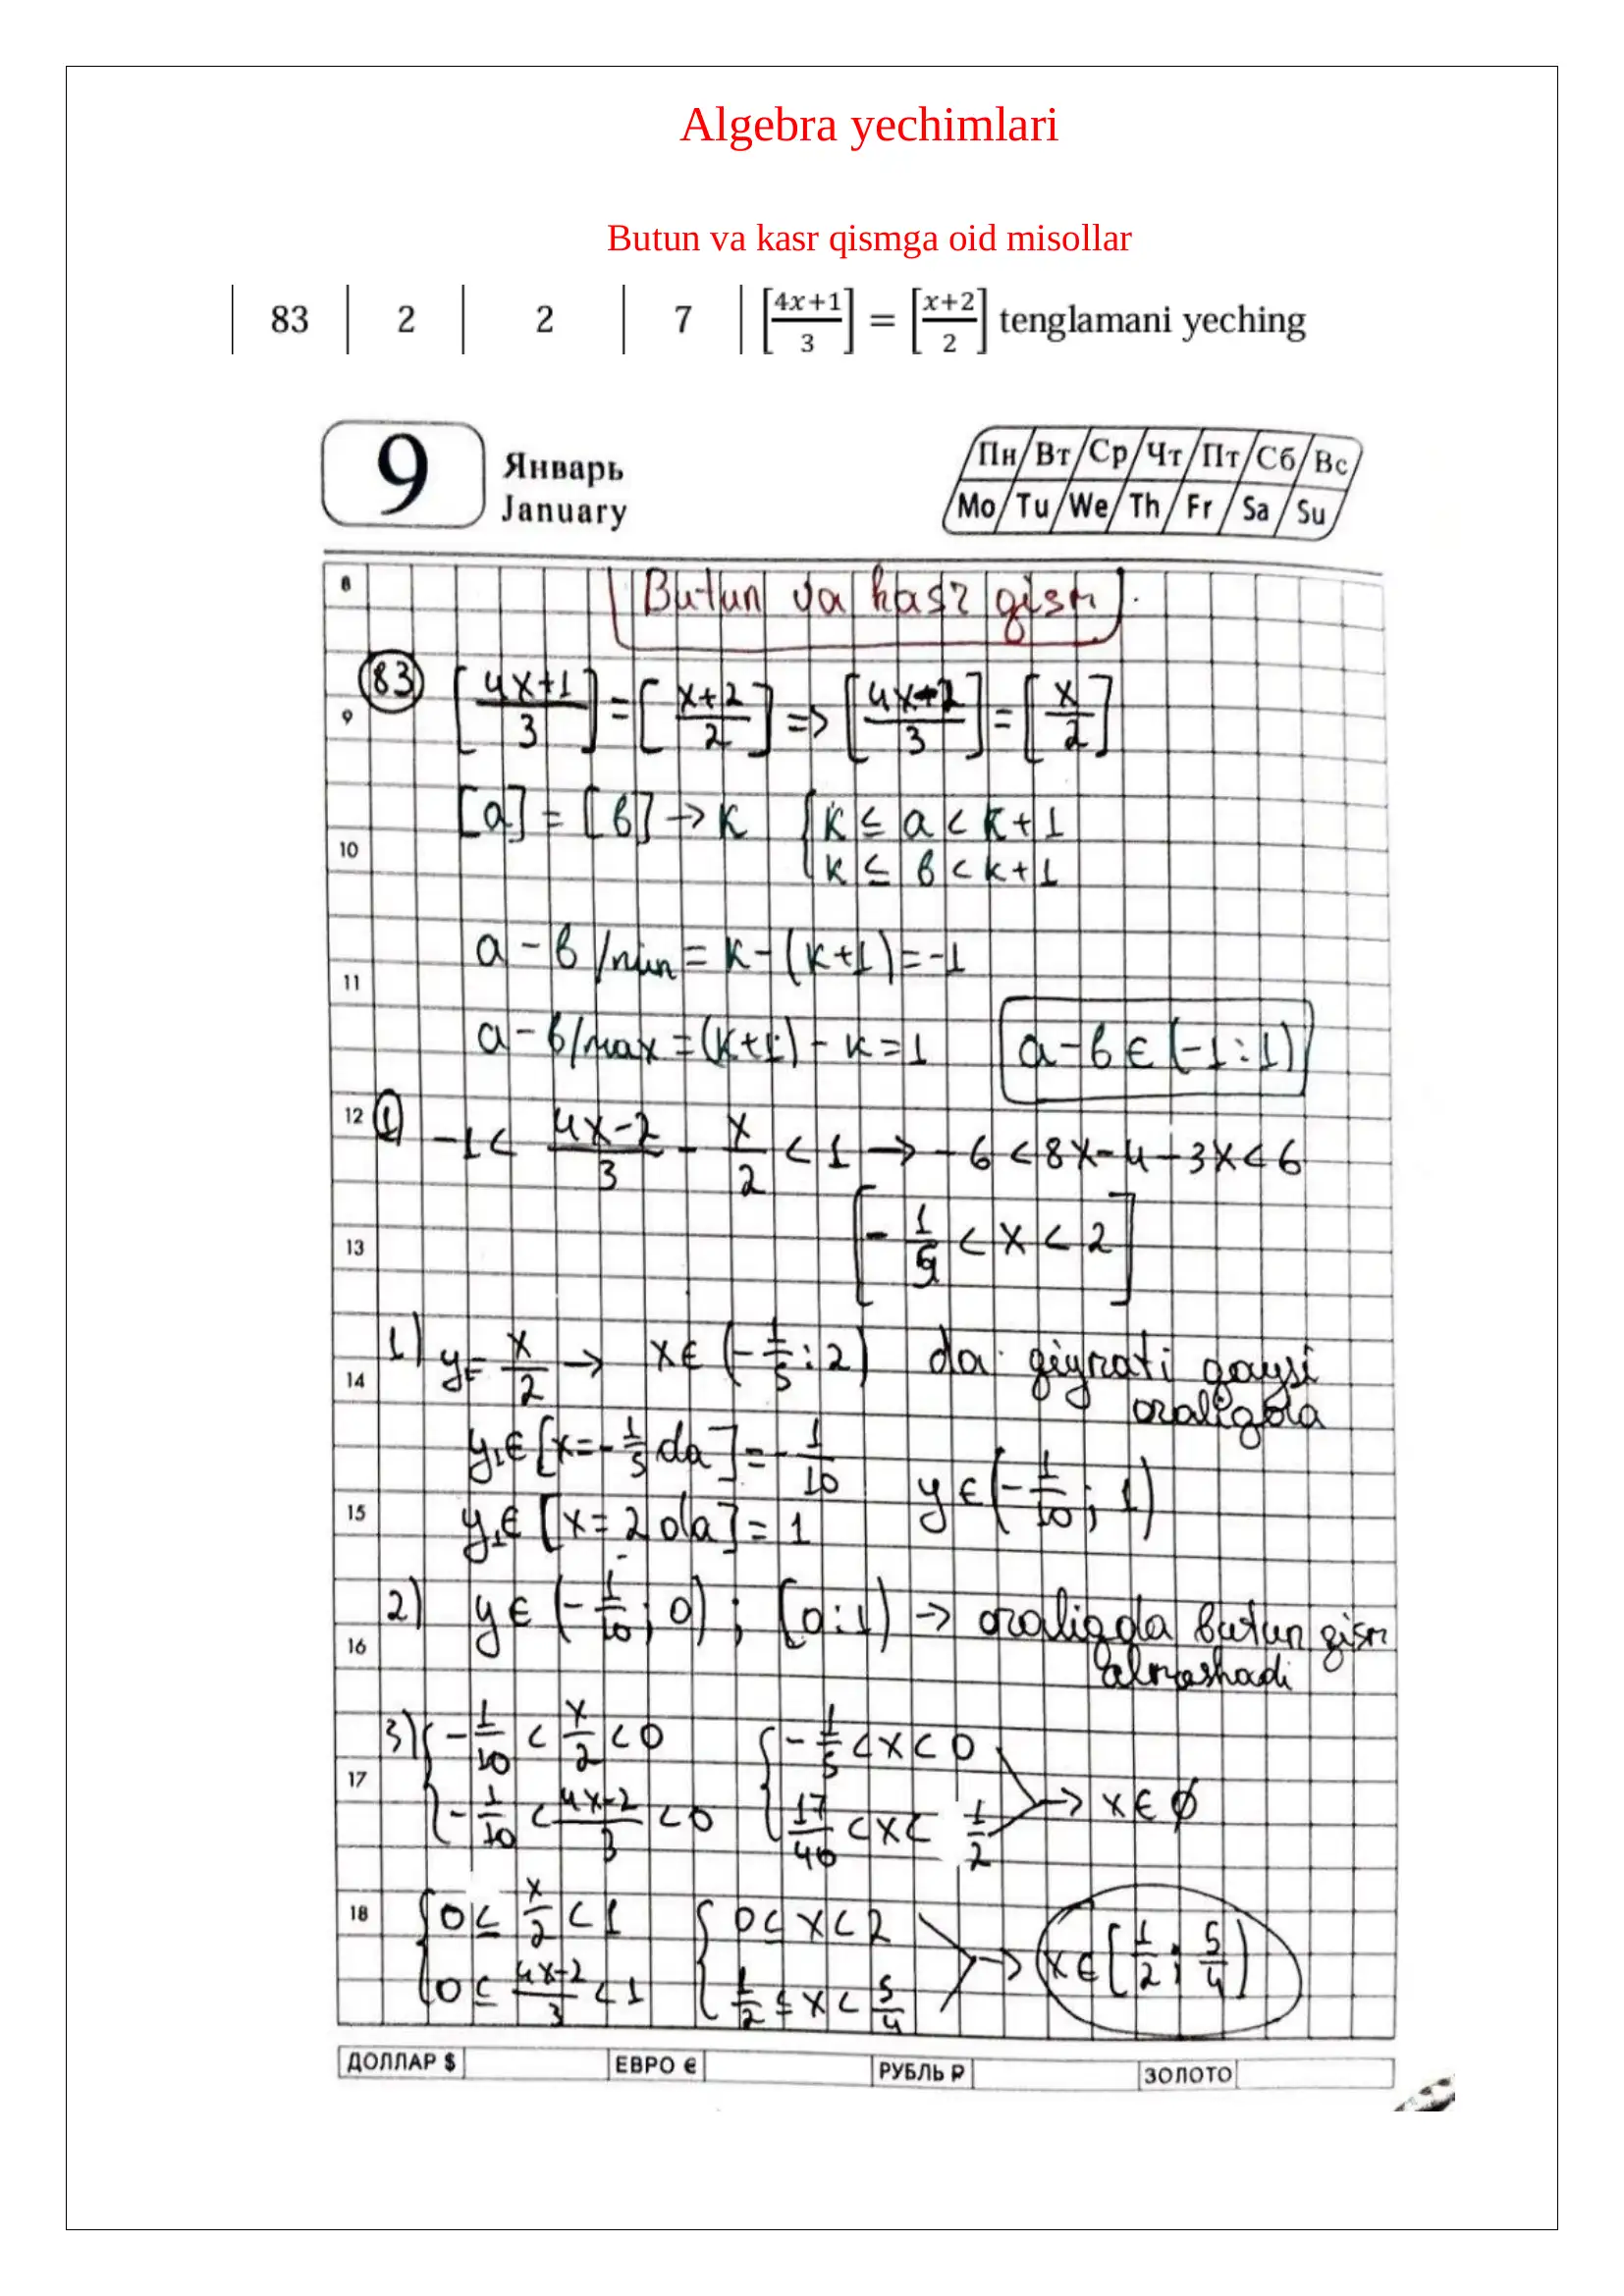 Algebra yechimlari
Butun va kasr qismga oid misollar
83 | 2 | 2 | 7 | [(4x+1)/3] = [(x+2)/2] tenglamani yeching
9 Январь
January
Пн Вт Ср Чт Пт Сб Вс
Mo Tu We Th Fr Sa Su
8 Butun va kasr qism.
83 [(4x+1)/3] = [(x+2)/2] => [(4x-2)/3] = [x/2]
9
[a] = [b] → k { k ≤ a < k+1
10 k ≤ b < k+1
a - b /min = k - (k+1) = -1
11
a - b/max = (k+1) - k = 1 a - b ∈ (-1:1)
12 1) -1 < (4x-2)/3 - x/2 < 1 → -6 < 8x-4-3x < 6
13 [-1/5 < x < 2]
1) y = x/2 → x ∈ (-1/5 : 2) da qiymati qaysi
14 oraliqda
y₁ ∈ [x = -1/5 da] = -1/10 y ∈ (-1/10 ; 1)
15 y₁ ∈ [x = 2 da] = 1
2) y ∈ (-1/10 ; 0) ; [0:1) → oraliqda butun qism
16 almashadi
3) { -1/10 < x/2 < 0 { -1/5 < x < 0
17 -1/10 < (4x-2)/3 < 0 17/40 < x < 1/2 → x ∈ ∅
18 { 0 ≤ x/2 < 1 { 0 ≤ x < 2
0 ≤ (4x-2)/3 < 1 1/2 ≤ x < 5/4 → x ∈ [1/2 ; 5/4)
ДОЛЛАР $ ЕВРО € РУБЛЬ ₽ ЗОЛОТО